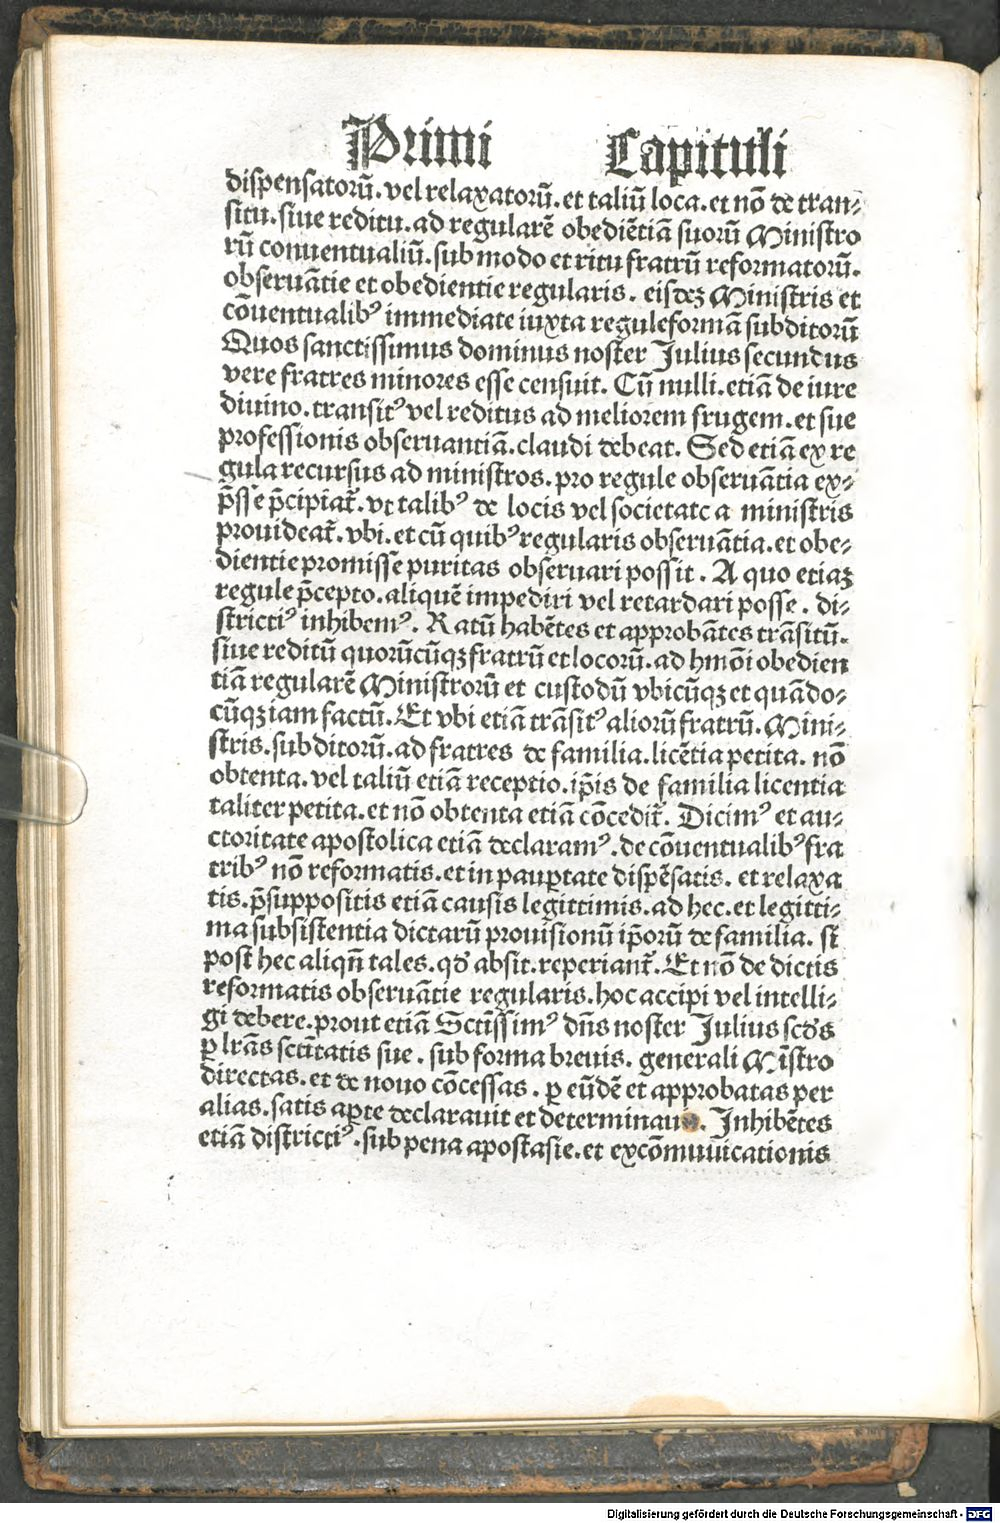 Primi Capituli
dispensatorū. vel relaxatorū. et taliū loca. et nō de tran⸗
situ. siue reditu. ad regularē obediētiā suorū Ministro
rū conuentualiū. sub modo et ritu fratrū reformatorū.
obseruātie et obedientie regularis. eisdēꝫ Ministris et
cōuentualibꝰ immediate iuxta regule formā subditorū
Quos sanctissimus dominus noster Julius secundus
vere fratres minores esse censuit. Cū nulli. etiā de iure
diuino. transitꝰ vel reditus ad meliorem frugem. et sue
professionis obseruantiā. claudi debeat. Sed etiā ex re
gula recursus ad ministros. pro regule obseruātia ex⸗
p̄sse p̄cipiat᷑. vt talibꝰ de locis vel societate a ministris
prouideat᷑. vbi. et cū quibꝰ regularis obseruātia. et obe⸗
dientie promisse puritas obseruari possit. A quo etiaꝫ
regule p̄cepto. aliquē impediri vel retardari posse. di⸗
strictiꝰ inhibemꝰ. Ratū habētes et approbātes trāsitū.
siue reditū quorūcūqꝫ fratrū et locorū. ad hmōi obedien
tiā regularē Ministrorū et custodū vbicūqꝫ et quādo⸗
cūqꝫ iam factū. Et vbi etiā trāsitꝰ aliorū fratrū. Mini⸗
stris. subditorū. ad fratres de familia. licētia petita. nō
obtenta. vel taliū etiā receptio. ip̄is de familia licentia
taliter petita. et nō obtenta etiā cōcedit᷑. Dicimꝰ et au⸗
ctoritate apostolica etiā declaramꝰ. de cōuentualibꝰ fra
tribꝰ nō reformatis. et in paup̱tate dispēsatis. et relaxa
tis. p̄suppositis etiā causis legittimis. ad hec. et legitti⸗
ma subsistentia dictarū prouisionū ip̄orū de familia. si
post hec aliqn̄ tales. qđ absit. reperiant᷑. Et nō de dictis
reformatis obseruātie regularis. hoc accipi vel intelli⸗
gi debere. prout etiā Sctissimꝰ dn̄s noster Julius scđs
ꝑ lr̄as sctitatis sue. sub forma breuis. generali Mīstro
directas. et de nouo cōcessas. ꝑ eūdē et approbatas per
alias. satis aꝑte declarauit et determinaui. Inhibētes
etiā districtiꝰ. sub pena apostasie. et excōmuūicationis
Digitalisierung gefördert durch die Deutsche Forschungsgemeinschaft - DFG